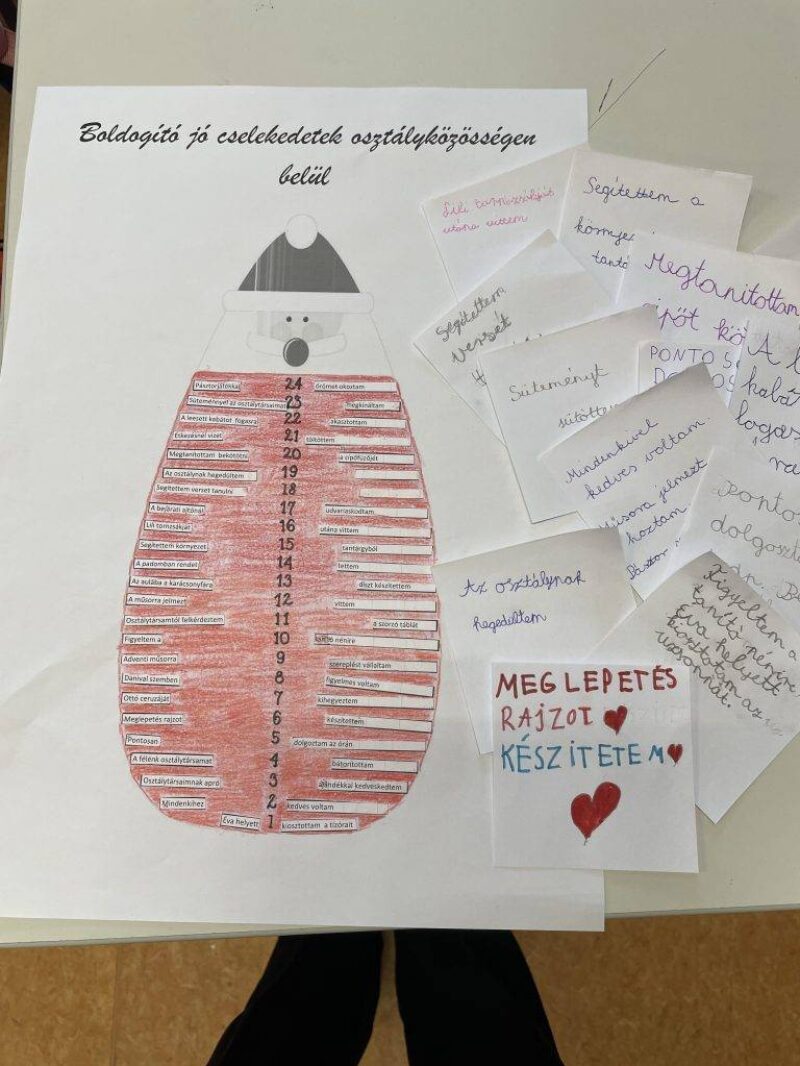 Boldogító jó cselekedetek osztályközösségen
belül
Pásztorjátékkal 24 örömet okoztam
Süteménnyel az osztálytársaimat 23 megkínáltam
A leesett kabátot fogasra 22 akasztottam
Étkezésnél vizet 21 töltöttem
Megtanítottam bekötötni 20 a cipőfűzőjét
Az osztálynak hegedültem 19
Segítettem verset tanulni 18
A bejárati ajtónál 17 udvariaskodtam
Lili tornazsákját 16 utána vittem
Segítettem környezet 15 tantárgyból
A padomban rendet 14 tettem
Az aulába a karácsonyfára 13 díszt készítettem
A műsorra jelmezt 12 vittem
Osztálytársamtól felkérdeztem 11 a szorzó táblát
Figyeltem a 10 tanító nénire
Adventi műsorra 9 szereplést vállaltam
Danival szemben 8 figyelmes voltam
Ottó ceruzáját 7 kihegyeztem
Meglepetés rajzot 6 készítettem
Pontosan 5 dolgoztam az órán
A félénk osztálytársamat 4 bátorítottam
Osztálytársaimnak apró 3 ajándékkal kedveskedtem
Mindenkihez 2 kedves voltam
Éva helyett 1 kiosztottam a tízórait
Lili tornazsákját
utána vittem
Segítettem a
tantó
Segítettem
Verset
Megtanítottam
cipőt kö
PONTO
Süteményt
sütöttem
A l
kabá
fogas
Mindenkivel
kedves voltam
Műsora jelmezt
hoztam
Ponto
dolgozt
Az osztálynak
hegedültem
Figyeltem a
tanító nénire
Éva helyett
kiosztotam az
uzsonnát.
MEGLEPETÉS
RAJZOT
KÉSZÍTETEM